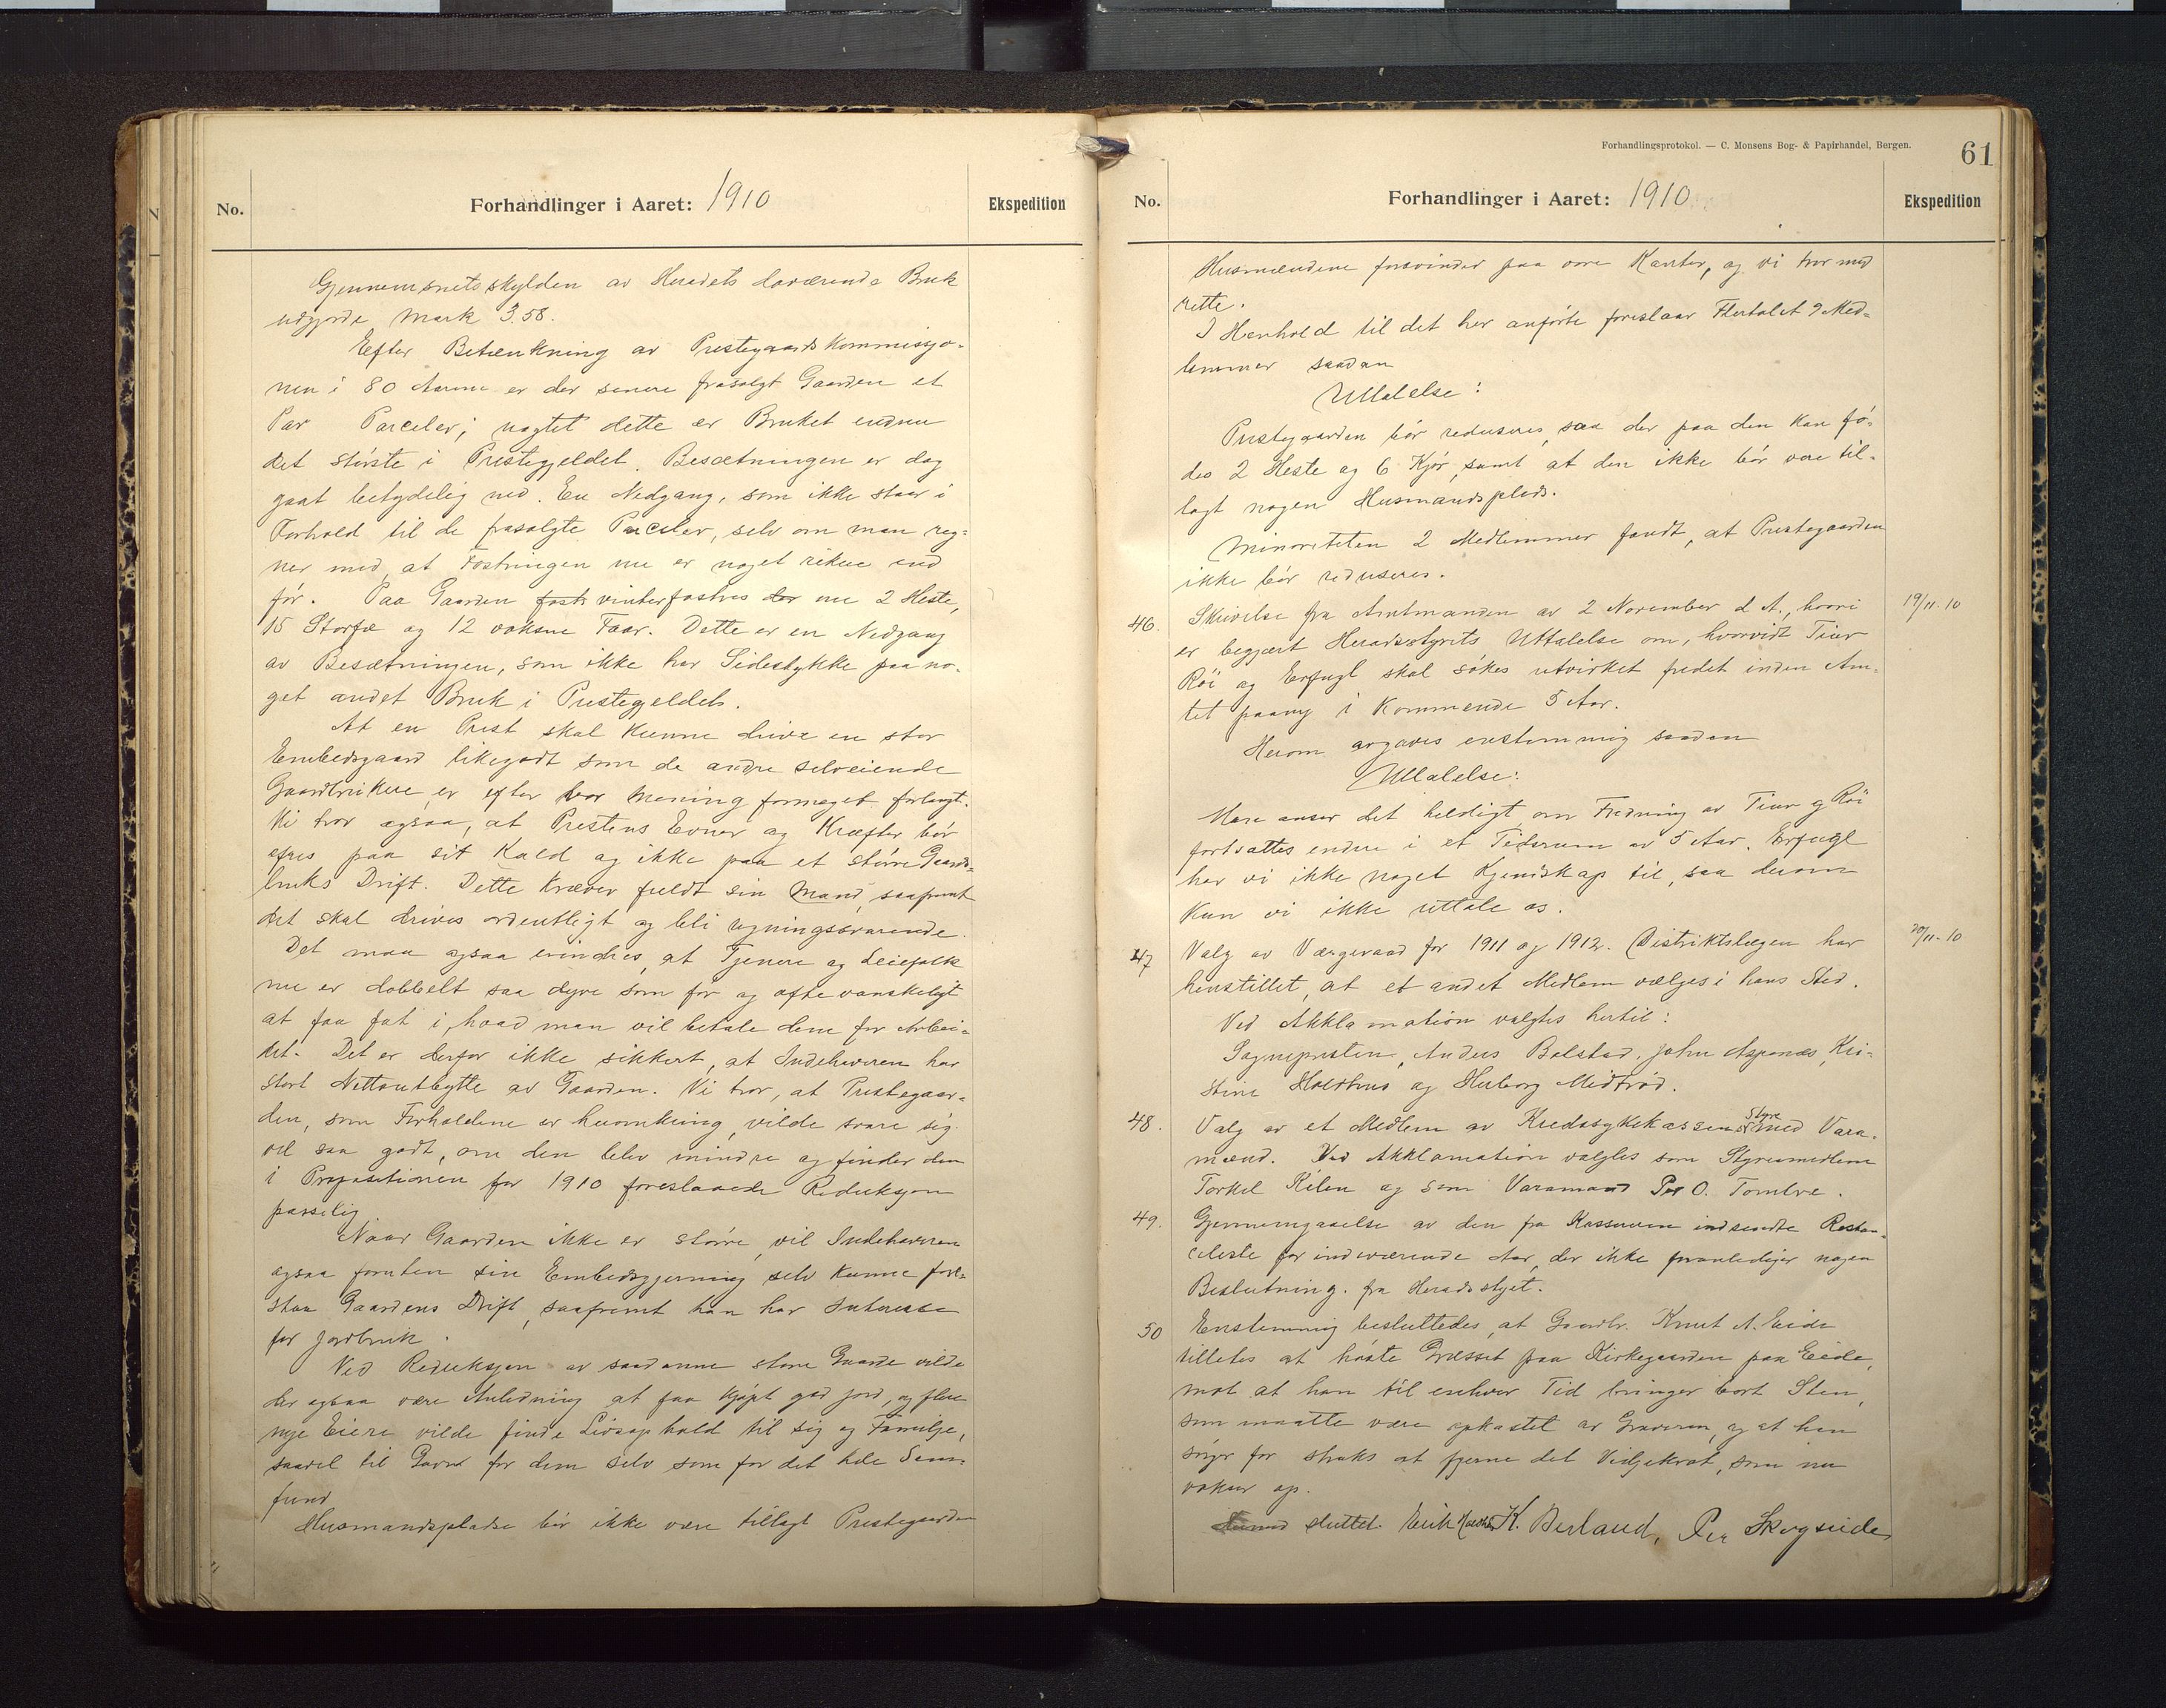 No.
Forhandlinger i Aaret: 1910
Ekspedition
Gjennemsnitsskylden av Heredets daværende Bruk
udgjorde Mark 3.58.
Efter Betænkning av Prestegaardskommissjo-
nen i 80 Aarene er der senere frasolgt Gaarden et
Par Parceler; uagtet dette er Bruket endnu
det største i Prestegjeldet. Besætningen er dog
gaat betydelig ned. En Nedgang, som ikke staar i
Forhold til de frasolgte Parceler, selv om man reg-
ner med, at Fostringen nu er noget rikere end
før. Paa Gaarden fostr vinterfostres der nu 2 Heste,
15 Storfæ og 12 voksne Faar. Dette er en Nedgang
av Besætningen, som ikke har Sidestykke paa no-
get andet Bruk i Prestegjeldet.
At en Prest skal kunne drive en stor
Embedsgaard likegodt som de andre selveiende
Gaardbrukere er efter vor Mening formeget forlangt.
Vi tror ogsaa, at Prestens Evner og Kræfter bør
ofres paa sit Kald og ikke paa et større Gaards-
bruks Drift. Dette kræver fuldt sin Mand, saafremt
det skal drives ordentligt og bli regningssvarende.
Det maa ogsaa erindres, at Tjenere og Leiefolk
nu er dobbelt saa dyre som før og ofte vanskeligt
at faa fat i, hvad man vil betale dem for Arbei-
det. Det er derfor ikke sikkert, at Indehaveren har
stort Nettoutbytte av Gaarden. Vi tror, at Prestegaar-
den, som Forholdene er heromkring, vilde svare sig
vel saa godt, om den blev mindre og finder den
i Propositionen for 1910 foreslaaede Reduksjon
passelig.
Naar Gaarden ikke er større, vil Indehaveren
ogsaa foruten sin Embedsgjerning selv kunne fore-
staa Gaardens Drift, saafremt han har Interesse
for Jordbruk.
Ved Reduksjon av saadanne store Gaarde vilde
der ogsaa være Anledning at faa kjøpt god Jord, og flere
nye Eiere vilde finde Livsophold til sig og Familje,
saavel til Gavn for dem selv som for det hele Sam-
fund
Husmandspladse bør ikke være tillagt Prestegaarden
Forhandlingsprotokol. — C. Monsens Bog- & Papirhandel, Bergen.
61
No.
Forhandlinger i Aaret: 1910
Ekspedition
Husmændene forsvinder paa vore Kanter, og vi tror med
rette.
I Henhold til det her anførte foreslaar Flertalet 9 Med-
lemmer saadan
Uttalelse:
Prestegaarden bør reduseres, saa der paa den kan fø-
des 2 Heste og 6 Kjør, samt at den ikke bør være til-
lagt nogen Husmandsplads.
Minoriteten 2 Medlemmer fandt, at Prestegaarden
ikke bør reduseres.
46. Skrivelse fra Amtmanden av 2 November d. A., hvori 19/11-10
er begjært Heradsstyrets Uttalelse om, hvorvidt Tiur
Röi og Erfugl skal søkes utvirket fredet inden Am-
tet paany i kommende 5 Aar.
Herom avgaves enstemmig saadan
Uttalelse:
Man anser det heldigt, om Fredning av Tiur og Röi
fortsættes endnu i et Tidsrum av 5 Aar. Erfugl
har vi ikke noget Kjendskap til, saa derom
kan vi ikke uttale os.
47 Valg av Værgeraad for 1911 og 1912. Distriktslægen har 20/11-10
henstillet, at et andet Medlem vælges i hans Sted.
Ved Akklamation valgtes hertil:
Sognepresten, Anders Bolstad, John Aspenæs, Kri-
stine Holdhus og Herborg Midtrød.
48. Valg av et Medlem av Kredssykekassens Styre med Vara-
mænd. Ved Akklamation valgtes som Styresmedlem
Torkel Kilen og som Varamand Per O. Tombre.
49. Gjennemgaaelse av den fra Kassereren indsendte Restan-
celiste for indeværende Aar, der ikke foranlediger nogen
Beslutning fra Heradsstyret.
50 Enstemmig besluttedes, at Gaardbr. Knut N. Eide
tillates at høste Græsset paa Kirkegaarden paa Eide,
mot at han til enhver Tid bringer bort Sten,
som maatte være opkastet av Graveren, og at han
sørger for straks at fjerne det Vidjekrat, som nu
vokser op.
sluttet. Erik K. Berland, Per Skogseide